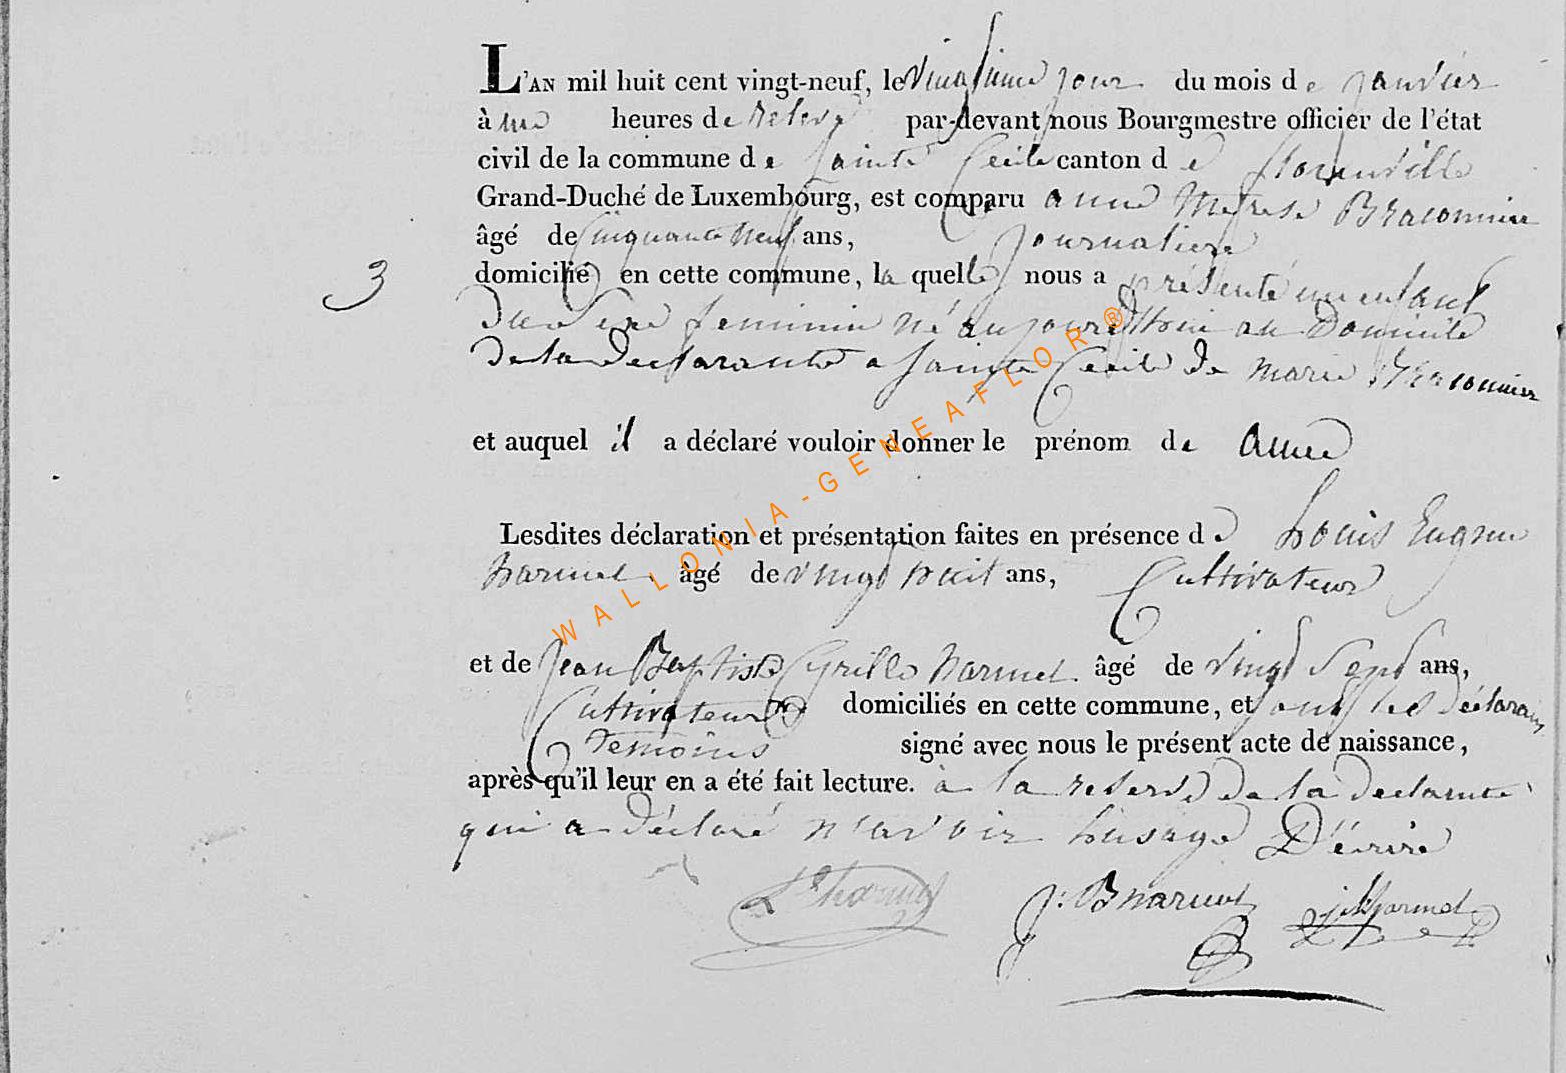 L'AN mil huit cent vingt-neuf, le vingtieme jour du mois de janvier
à une heures de relevé par-devant nous Bourgmestre officier de l'état
civil de la commune de Sainte Cecile canton de florenville
Grand-Duché de Luxembourg, est comparu anne Therese Braconnier
âgé de Cinquante neuf ans, Journaliere
domicilié en cette commune, la quelle nous a présenté un enfant
3
du Sexe feminin né aujourdhui au Domicile
de la declarante a Sainte Cecile de marie Braconnier
et auquel il a déclaré vouloir donner le prénom de anne
Lesdites déclaration et présentation faites en présence de Louis Eugene
harmel âgé de vingt huit ans, Cultivateur
et de Jean Baptiste Cyrille harmel âgé de vingt Sept ans,
Cultivateur domiciliés en cette commune, et ont les déclarans
temoins signé avec nous le présent acte de naissance,
après qu'il leur en a été fait lecture. à la reserve de la declarante
qui a déclaré n'avoir l'usage D'écrire
harmel J: B harmel harmel
WALLONIA-GENEAFLOR ®